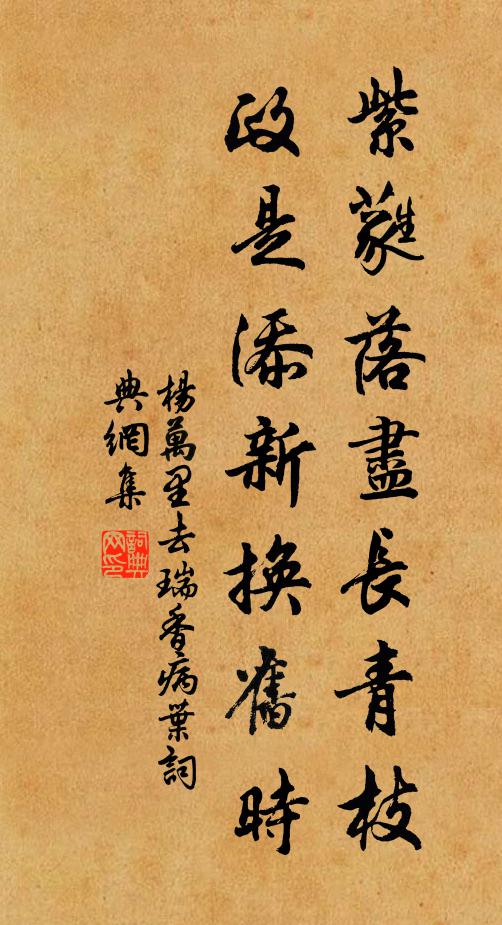 紫蕤落盡長青枝
政是添新換舊時
楊萬里去瑞香病葉詞
典網集
詞典网印